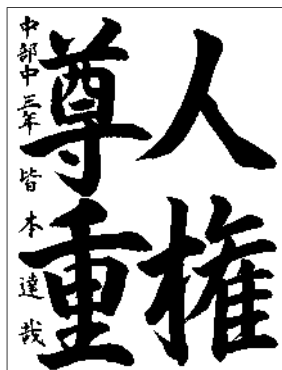 人権
尊重
中部中三年 皆本達哉